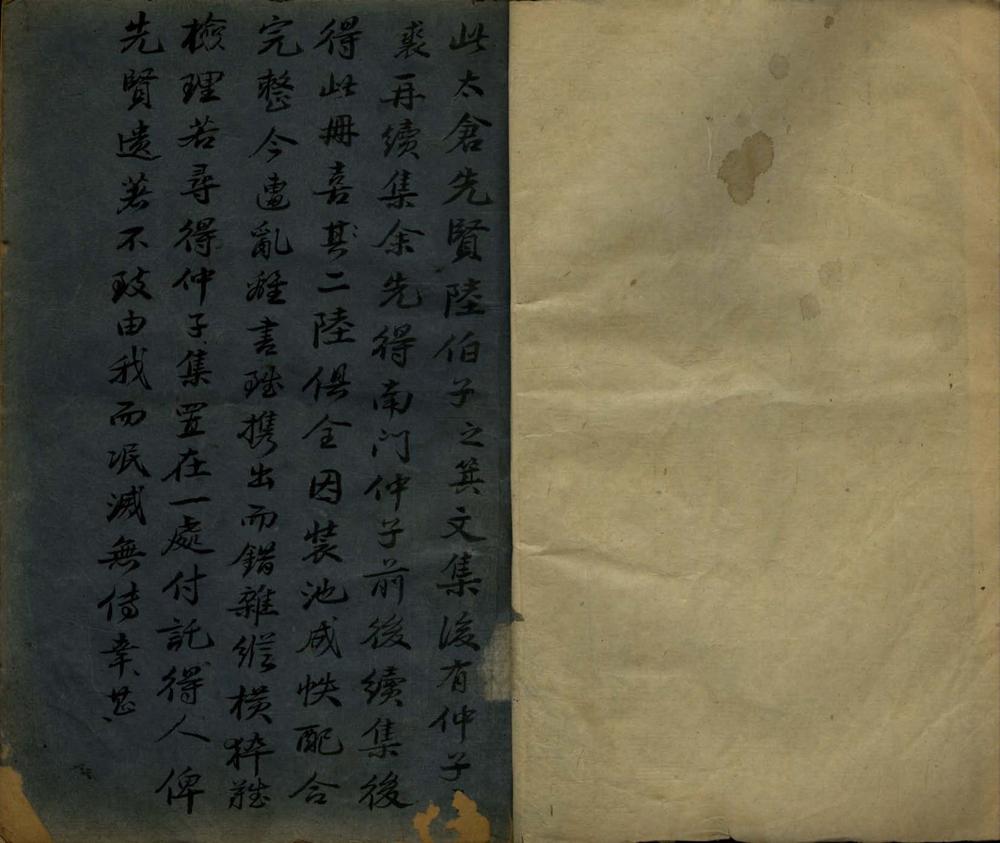 此太倉先賢陸伯子之箕文集後有仲子
裘再續集余先得南门仲子前後續集後
得此冊喜其二陸俱全因裝池成帙配合
完整今遭亂離書雖携出而錯雜縱橫猝難
檢理若尋得仲子集置在一處付託得人俾
先賢遺著不致由我而泯滅無傳幸甚